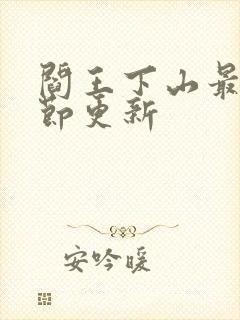 阎王下山最
节更新
安吟暖